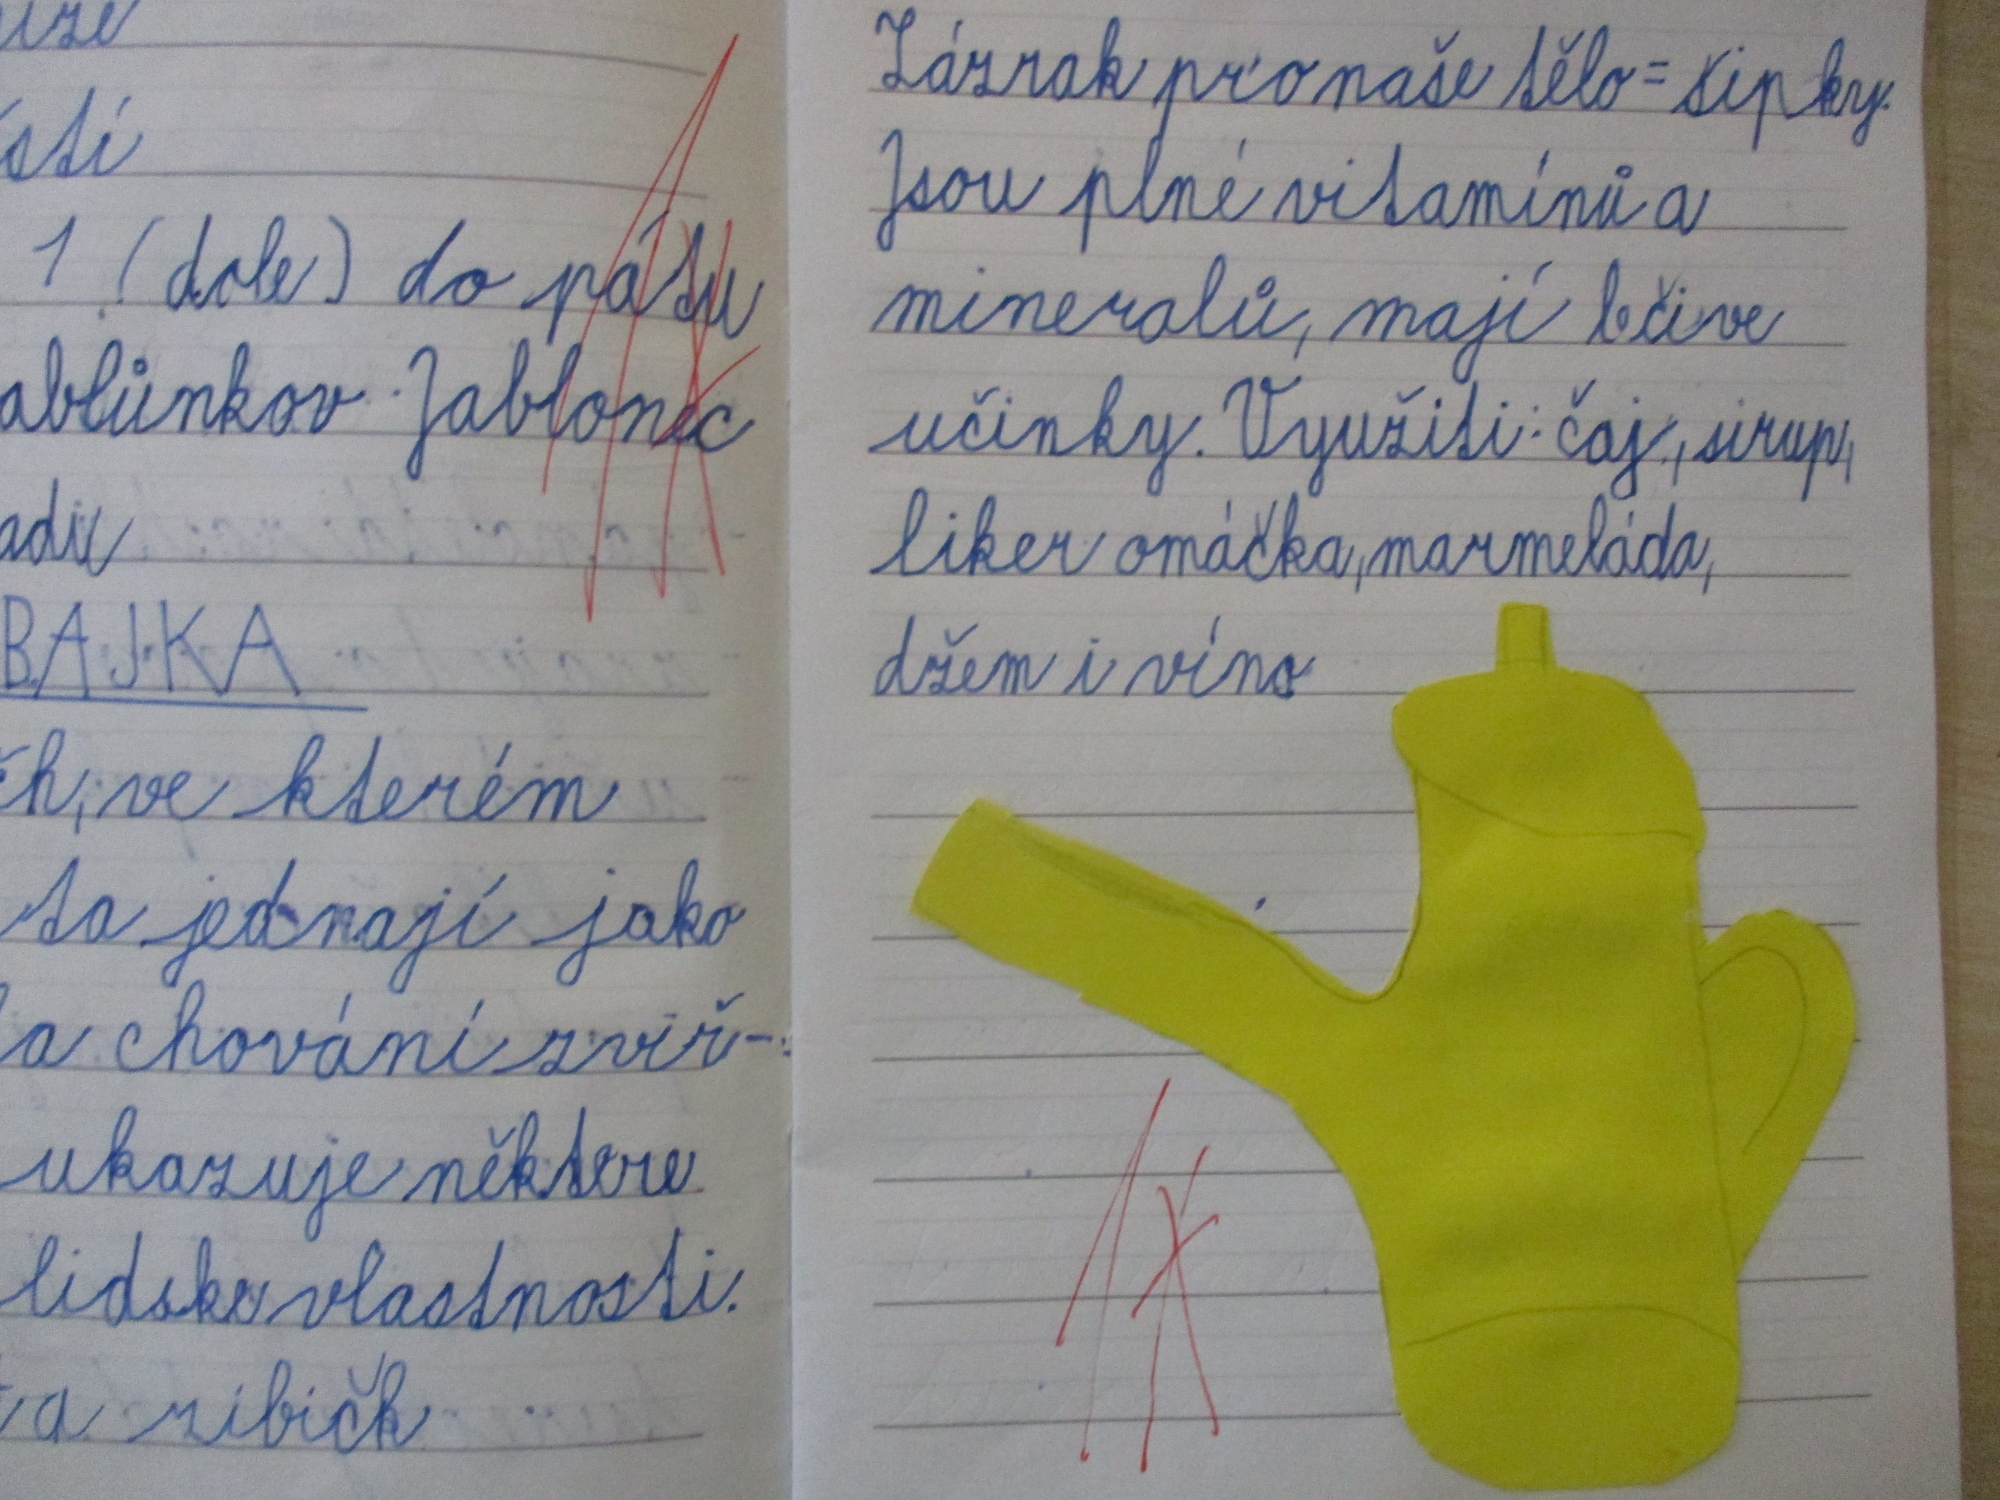 1 (dole) do pásu
Jablonec
BAJKA
ve kterém
jednají jako
chování zvíř-
ukazuje některe
lidske vlastnosti.
a ribičk
Zázrak pro naše tělo = šipky.
Jsou plné vitamínů a
mineralů, mají lečive
učinky. Využiti: čaj, sirup,
liker omáčka, marmeláda,
džem i víno